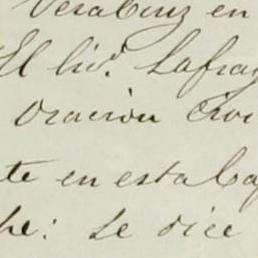 Veracruz en
El Lic. Lafrag
Oracion Civi
te en esta Ca
he: Se dice